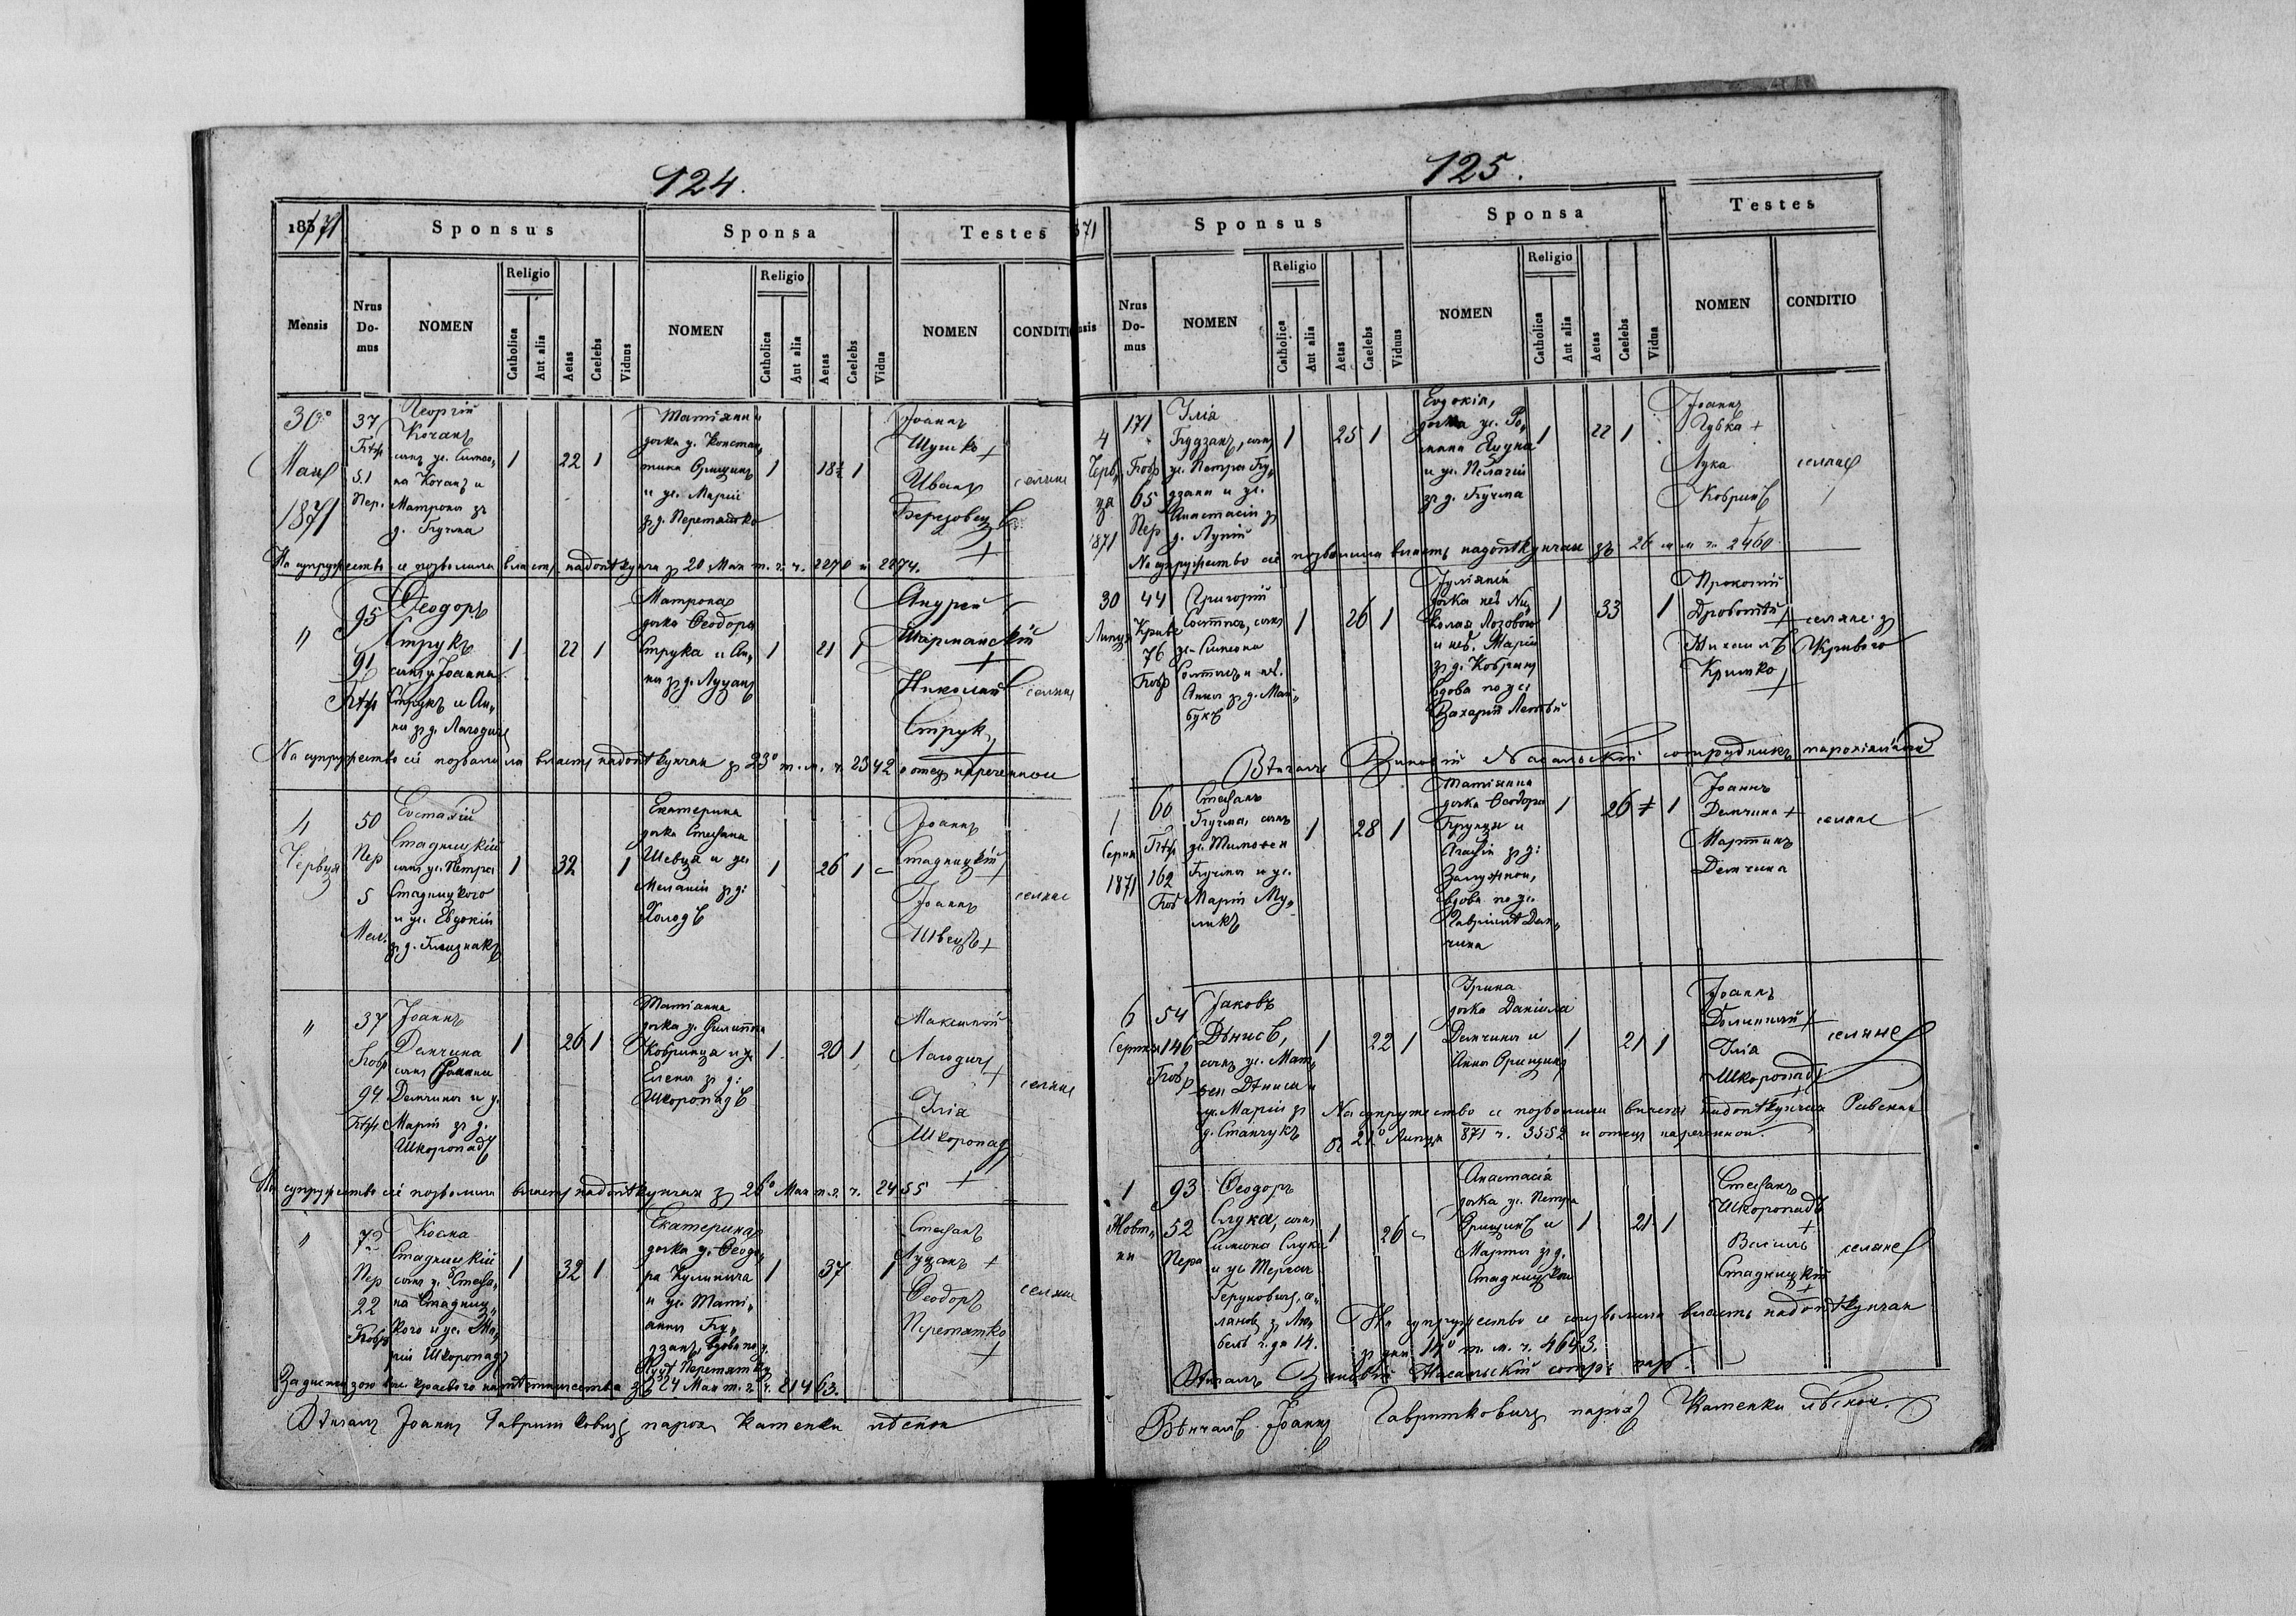 124.
1871
Sponsus
Sponsa
Testes
Mensis
Nrus Domus
NOMEN
Religio
Catholica
Aut alia
Aetas
Caelebs
Viduus
NOMEN
Religio
Catholica
Aut alia
Aetas
Caelebs
Vidua
NOMEN
CONDITI
30°
Мая
1871
37
51
Пер.
Георгій
Кочанъ
сынъ ус. Симео„
на Кочанъ и
Матрона зъ
д. Кучма
1
22
1
Татіянна
дочка у. Констан„
тина Орищинъ
и ус. Маріи
зъ д. Перетятко
1
18½
1
Іоаннъ
Шушко +
Иванъ
Березовец
+
селяне
На супружество се позволила власть надопѣкунча зъ 20 Мая т. г. ч. 2270 и 2274.
"
95
91
Ѳеодоръ
Струкъ
сынъ у. Іоанна
Струкъ и Ан„
на зъ д. Лагодичъ
1
22
1
Матрона
дочка Ѳеодора
Струка и Ан„
на зъ д. Луцанъ
1
21
1
Андрей
Шарпанскій
+
Николай
Струк
+
селяне
На супружество сіе позволила власть надопѣкунчая зъ 23° т. м. ч. 2342 о отецъ нареченной
4
Червця
50
Пер
5
Мел.
Евстахій
Стадницкій
сынъ ус. Петра
Стадницкого
и ус. Евдокіи
зъ д. Близнакъ
1
32
1
Екатерина
дочка Стефана
Шевця и ус.
Меланіи зъ д:
Холодъ
1
26
1
Іоаннъ
Стадницкій
+
Іоаннъ
Швець +
селяне
"
37
94
Іоаннъ
Демчина
сынъ Іоанна
Демчина и у.
Маріи зъ д.
Шкоропадъ
1
26
1
Татіанна
дочка у. Филиппа
Кобринца и у.
Елена зъ д:
Шкоропадъ
1
20
1
Максимій
Лагодичъ
+
Илія
Шкоропадъ
+
селяне
На супружество сіе позволила власть надопѣкунчая зъ 26° Мая т. г. ч. 2455
"
72
Пер
22
Косма
Стадницкій
сынъ у. Стефа„
на Стадниц„
кого и ус. Ма„
ріи Шкоропадъ
1
32
1
Екатерина
дочка у. Ѳеодо„
ра Кулинича
и ус. Тати„
анна Гу„
дзанъ, вдова по у.
Перетятку
1
37
1
Стефанъ
Луцанъ +
Ѳеодоръ
Перетятко
+
селяне
За диспензою выс. краевого намѣстничества зъ 24 Мая т. г. ч. 21463.
Вѣнчалъ Іоаннъ Гавришковичъ парох Каменки лѣсной
125.
871
Sponsus
Sponsa
Testes
nsis
Nrus Domus
NOMEN
Religio
Catholica
Aut alia
Aetas
Caelebs
Viduus
NOMEN
Religio
Catholica
Aut alia
Aetas
Caelebs
Vidua
NOMEN
CONDITIO
4
Черв„
ця
1871
171
65
Пер
Илія
Гудзанъ, сынъ
ус. Петра Гу„
дзана и ус.
Анастасіи зъ
д. Лупій
1
25
1
Евдокія,
дочка ус. Ро„
мана
и ус. Пелагіи
зъ д. Кучма
1
22
1
Іоаннъ
Чубка +
Лука
Кобринъ
+
селяне
На супружество сіе позволила власть надопѣкунчая зъ 26 т. м. ч. 2460
30
Липця
44
Криве
76
Григорій
Солтысъ, сынъ
ус. Симеона
Солтысъ и неб.
Анны зъ д. Май„
букъ
1
26
1
Іуліянія
дочка неб. Ни„
колая Лозового
и неб. Маріи
зъ д. Кобринъ
вдова по ус.
Захарій
1
33
1
Прокопій
Дроботій
+
Михаилъ
Кришко
+
селяне зъ
Кривого
Вѣнчалъ Зиновій Насальскій сотрудникъ парохіяльный
1
Серпня
1871
60
162
Стефанъ
Кучма, сынъ
ус. Тимотея
Кучма и ус.
Маріи Му„
ликъ
1
28
1
Татіянна
дочка Ѳеодора
и
Агафіи зъ д:
Залужной,
вдова по ус.
Гавріилѣ Дем„
чина
1
26
1
Іоаннъ
Демчина +
Мартинъ
Демчина
селяне
6
Серпня
54
146
Іаковъ
Дѣнисъ,
сынъ ус. Мат„
вея Дѣниса и
ус. Маріи зъ
д. Станчукъ
1
22
1
Ірина
дочка Даніила
Демчина и
Анна Орищинъ
1
21
1
Іоаннъ
Долинный +
Илія
Шкоропадъ
+
селяне
На супружество се позволила власть надопѣкунчая Равская
зъ 21° Липця 871 ч. 3552 и отецъ нареченной.
1
Жовт„
ня
93
52
Пера
Ѳеодоръ
Слука, сынъ
Симеона Слука
и ус.
26
Анастасія
дочка ус. Петра
Орищинъ и
Марты зъ д.
Стадницкой
1
21
1
Стефанъ
Шкоропадъ
+
Василь
Стадницкій
+
селяне
На супружество се созволила власть надопѣкунчая
зъ дня 14° т. м. ч. 4643.
Вѣнчалъ Зиновій Насальскій сотр: пар.
Вѣнчалъ Іоаннъ Гавришковичъ парохъ Каменки лѣсной.